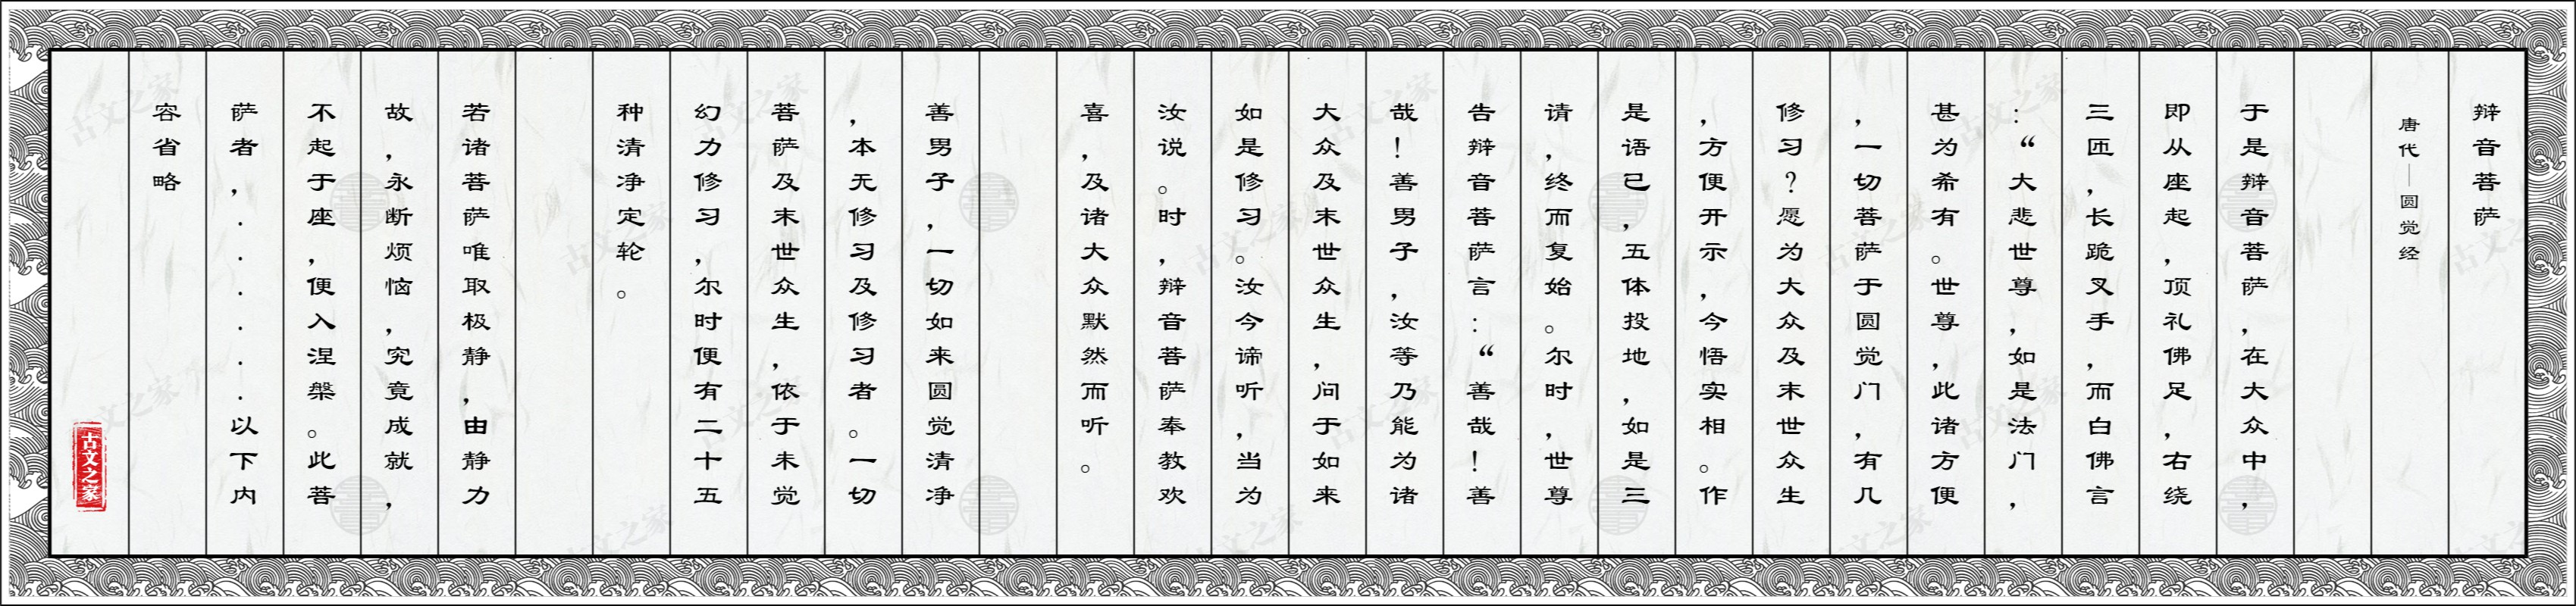 辩音菩萨
唐代—圆觉经
于是辩音菩萨,在大众中,
即从座起,顶礼佛足,右绕
三匝,长跪叉手,而白佛言
:“大悲世尊,如是法门,
甚为希有。世尊,此诸方便
,一切菩萨于圆觉门,有几
修习?愿为大众及末世众生
,方便开示,令悟实相。作
是语已,五体投地,如是三
请,终而复始。尔时,世尊
告辩音菩萨言:“善哉!善
哉!善男子,汝等乃能为诸
大众及末世众生,问于如来
如是修习。汝今谛听,当为
汝说。时,辩音菩萨奉教欢
喜,及诸大众默然而听。
善男子,一切如来圆觉清净
,本无修习及修习者。一切
菩萨及末世众生,依于未觉
幻力修习,尔时便有二十五
种清净定轮。
若诸菩萨唯取极静,由静力
故,永断烦恼,究竟成就,
不起于座,便入涅槃。此菩
萨者,......以下内
容省略
古文之家